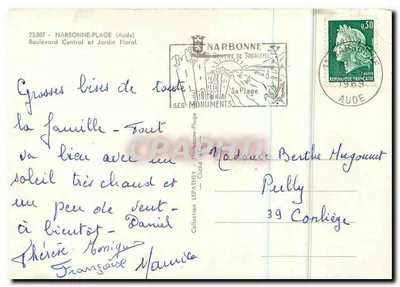 25.007 - NARBONNE-PLAGE (Aude)
Boulevard Central et Jardin Floral.
NARBONNE
CENTRE DE TOURISME
Sa Plage
SES MONUMENTS
0,30
REPUBLIQUE FRANÇAISE
1969
AUDE
Grosses bises de toute
la famille - Tout
va bien avec un
soleil très chaud et
un peu de vent -
à bientôt - Daniel
Thérèse Monique
Françoise Maurice
Collection LEPATHEY
Madame Berthe Huguenot
Publy
39 Conliège